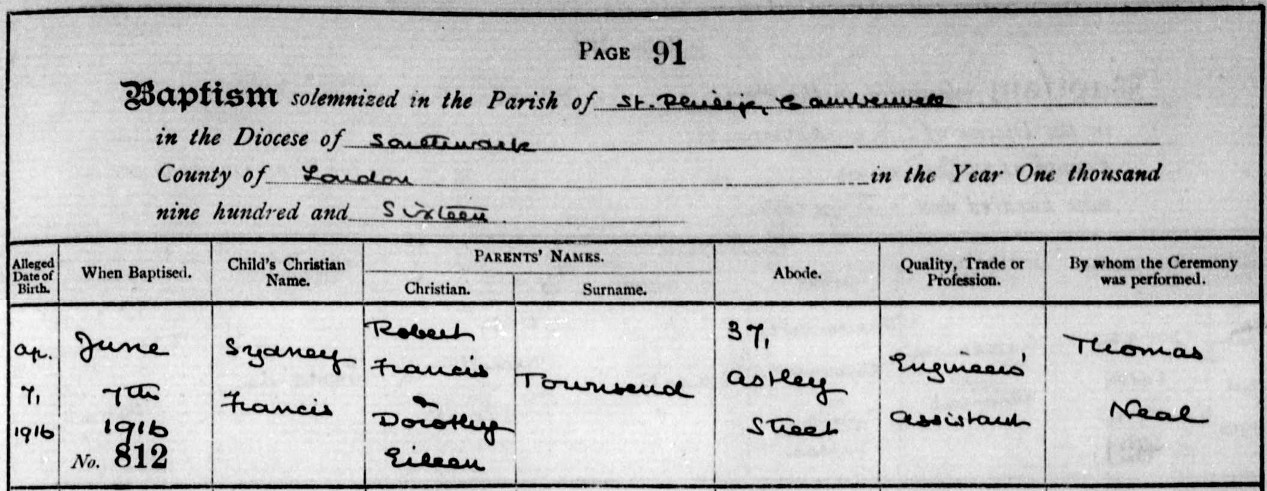 PAGE 91
Baptism solemnized in the Parish of St. Philip, Camberwell
in the Diocese of Southwark
County of London in the Year One thousand
nine hundred and Sixteen
Alleged Date of Birth.
When Baptised.
Child's Christian Name.
PARENTS' NAMES.
Christian.
Surname.
Abode.
Quality, Trade or Profession.
By whom the Ceremony was performed.
Ap.
7,
1916
June
7th
1916
No. 812
Sydney
Francis
Robert
Francis
&
Dorothy
Eileen
Townsend
37,
Astley
Street
Engineers'
Assistant
Thomas
Neal